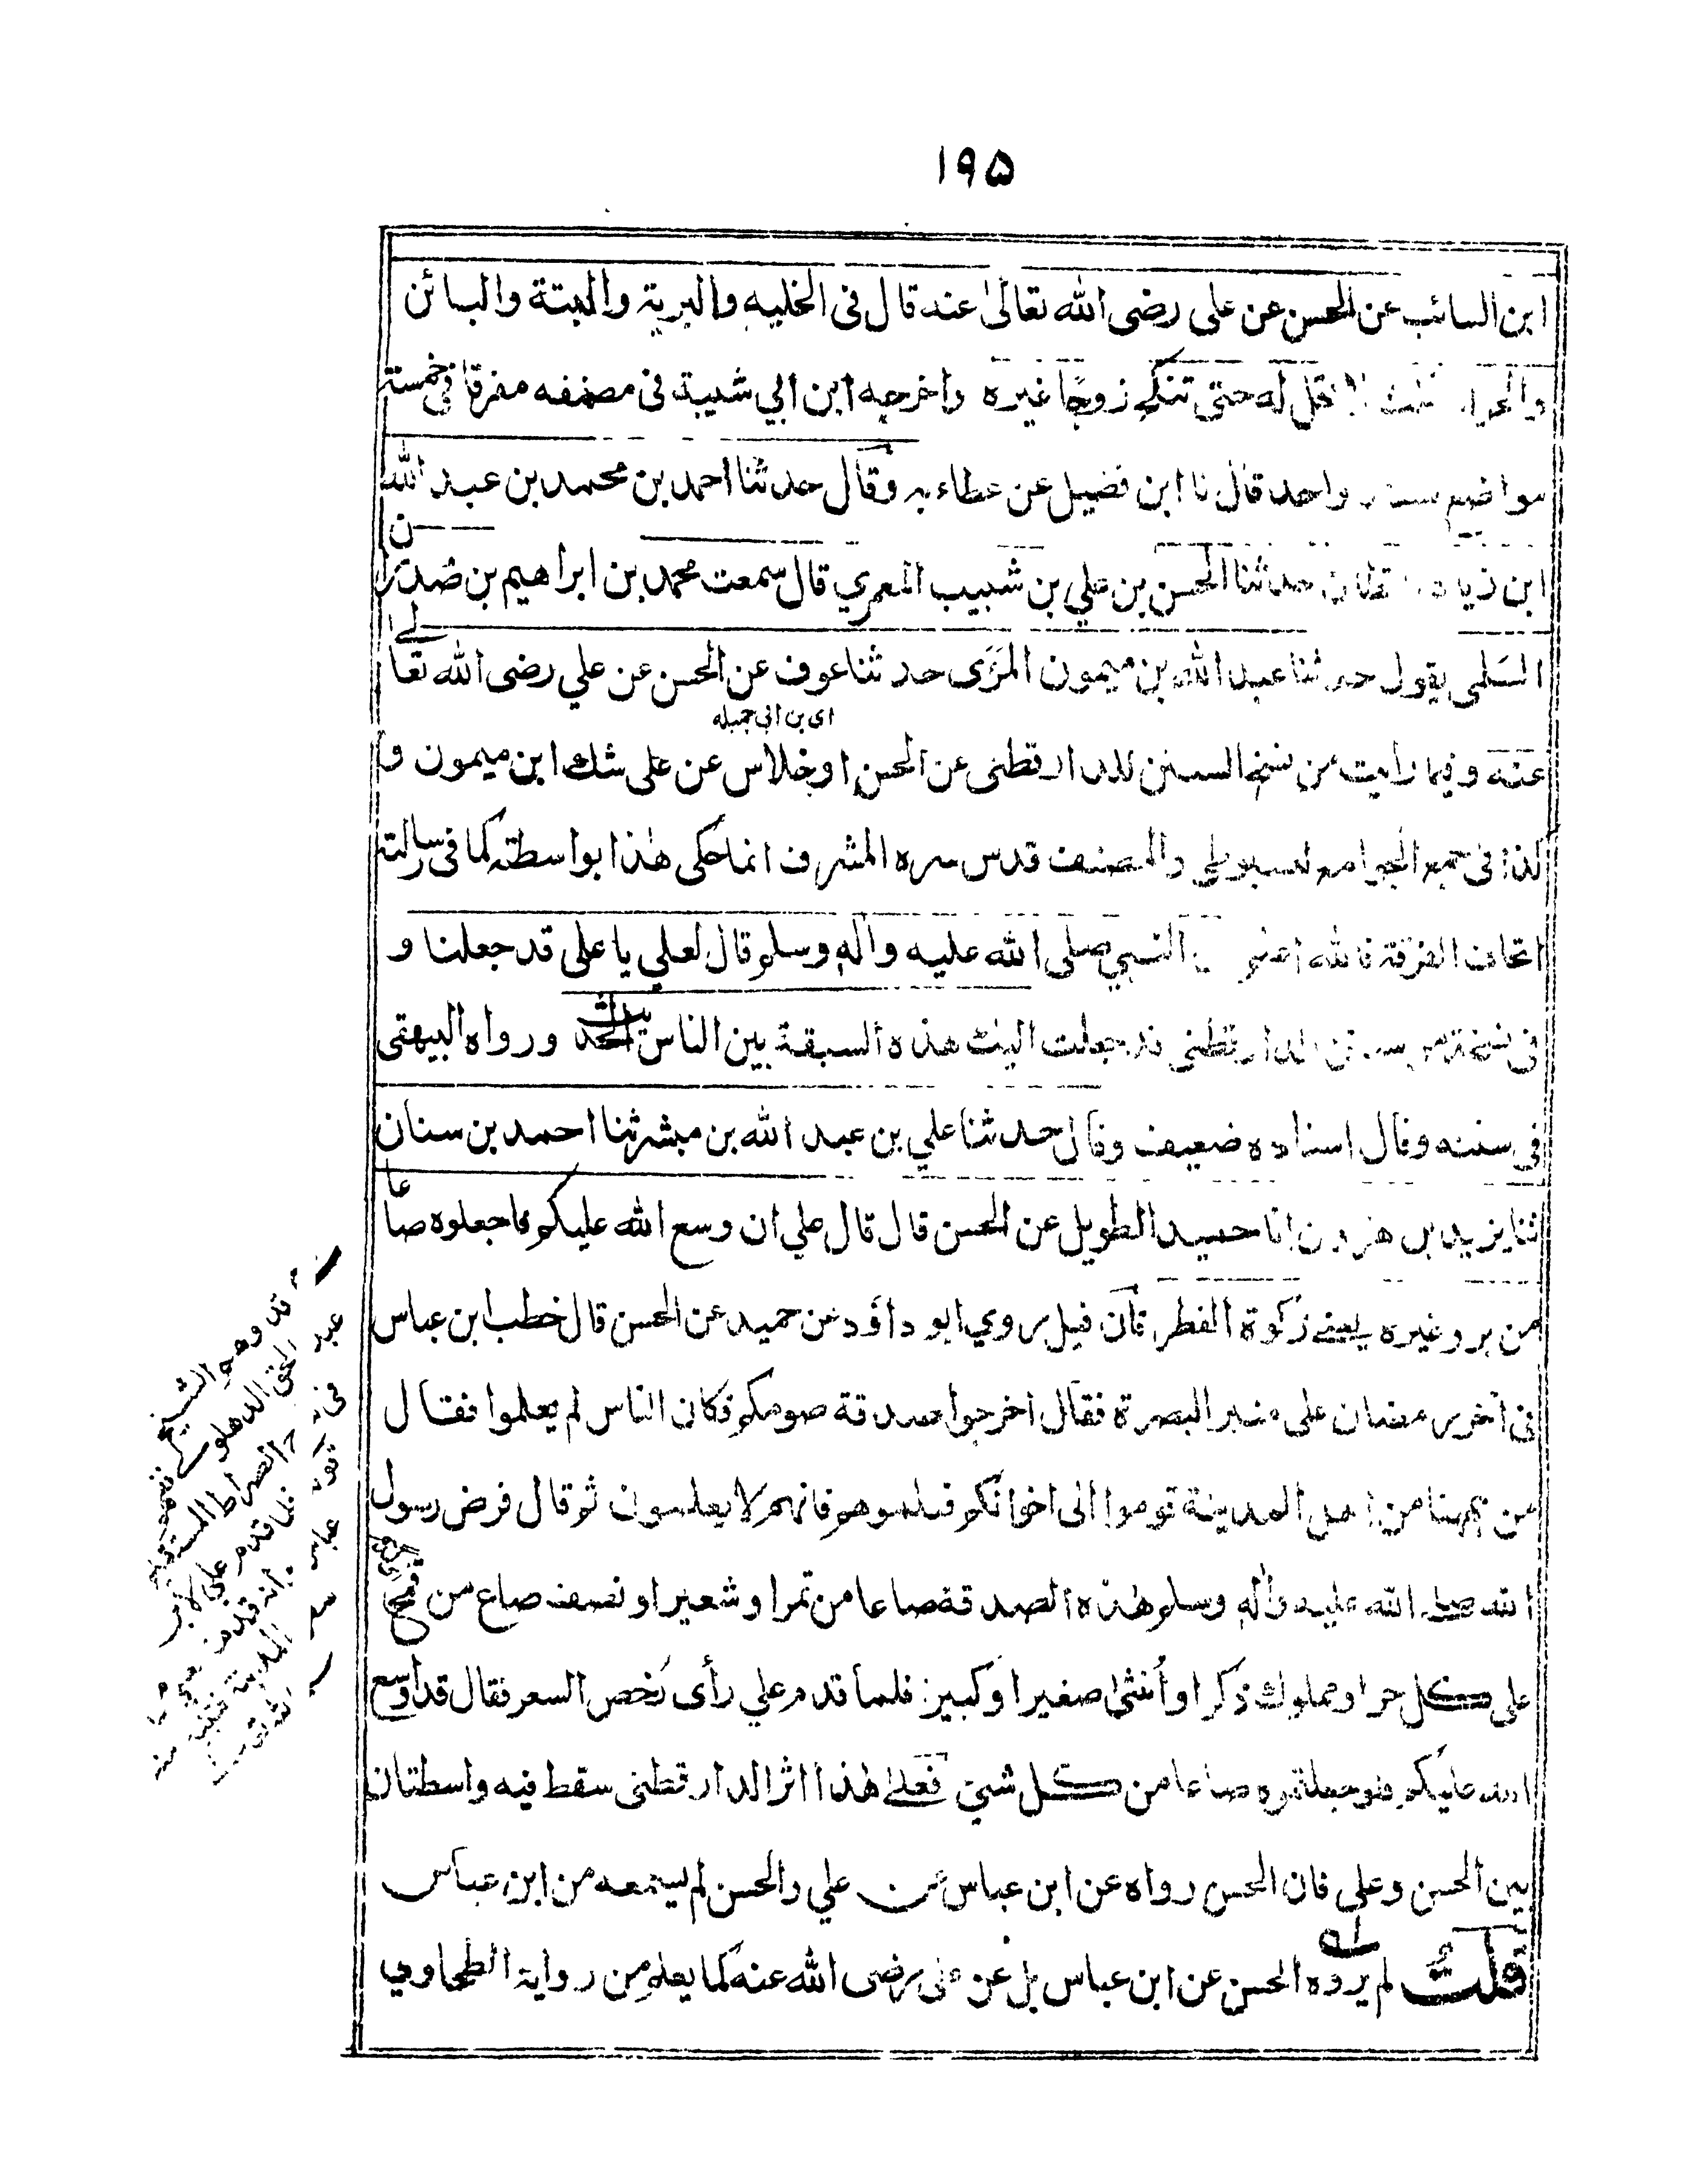 ١٩٥
ابن السائب عن الحسن عن على رضى الله تعالىٰ عنه قال فى الخلية والبرية والبتة والبائن
والحرام ثلث لا تحل له حتى تنكح زوجًا غيره واخرجه ابن ابي شيبة فى مصنفه مفرقا فى خمسة
مواضع بسند واحد قال نا ابن فضيل عن عطاء به وقال حدثنا احمد بن محمد بن عبد الله
ابن زياد القطان حدثنا الحسن بن علي بن شبيب المعمري قال سمعت محمد بن ابراهيم بن صُدران
السَلمى يقول حدثنا عبد الله بن ميمون المَرَءى حدثنا عوف عن الحسن عن علي رضى الله تعالے
اى بن ابى جميلة
عنه وفيما رايت من نسخ السنن للدارقطنى عن الحسن اوخلاس عن على شك ابن ميمون و
لذا فى جمع الجوامع لسيوطي والمصنف قدس سره المشرف انما حكى هٰذا بواسطته كما فى رسالته
اتحاف الفرقة فالله اعلم النبي صلى الله عليه واٰله وسلم قال لعلي يا على قد جعلنا و
فى نسخة من سنن الدارقطنى قد جعلت اليك هذه السبقة بين الناس الحديث ورواه البيهقى
فى سننه وقال اسناده ضعيف وقال حدثنا علي بن عبد الله بن مبشر ثنا احمد بن سنان
ثنا يزيد بن هٰرون انا حميد الطويل عن الحسن قال قال علي ان وسع الله عليكم فاجعلوه صاعًا
من بر وغيره يعنے زكوٰة الفطر فان قيل روي ابو داؤد عن حميد عن الحسن قال خطب ابن عباس
فى اٰخر رمضان على منبر البصرة فقال اخرجوا صدقة صومكم فكان الناس لم يعلموا فقال
من ههنا من اهل المدينة قوموا الى اخوانكم فعلموهم فانهم لا يعلمون ثم قال فرض رسول
الله صلے الله عليه واٰله وسلم هٰذه الصدقة صاعا من تمر او شعير او نصف صاع من قمح
على كل حر او مملوك ذكر او اُنثىٰ صغير او كبير فلما قدم علي رأى رُخص السعر فقال قد اوسع
الله عليكم فلو جعلتموه صاعا من كل شئ فعلےٰ هٰذا اثر الدارقطنى سقط فيه واسطتان
بين الحسن وعلى فان الحسن رواه عن ابن عباس عن علي والحسن لم يسمعه من ابن عباس
قلتُ لم يروه الحسن عن ابن عباس بل عن على رضى الله عنه كما يعلم من رواية الطحاوي
قد وهم الشيخ
عبد الحق الدهلوے
الصراط المستقيم
فلما قدم علي